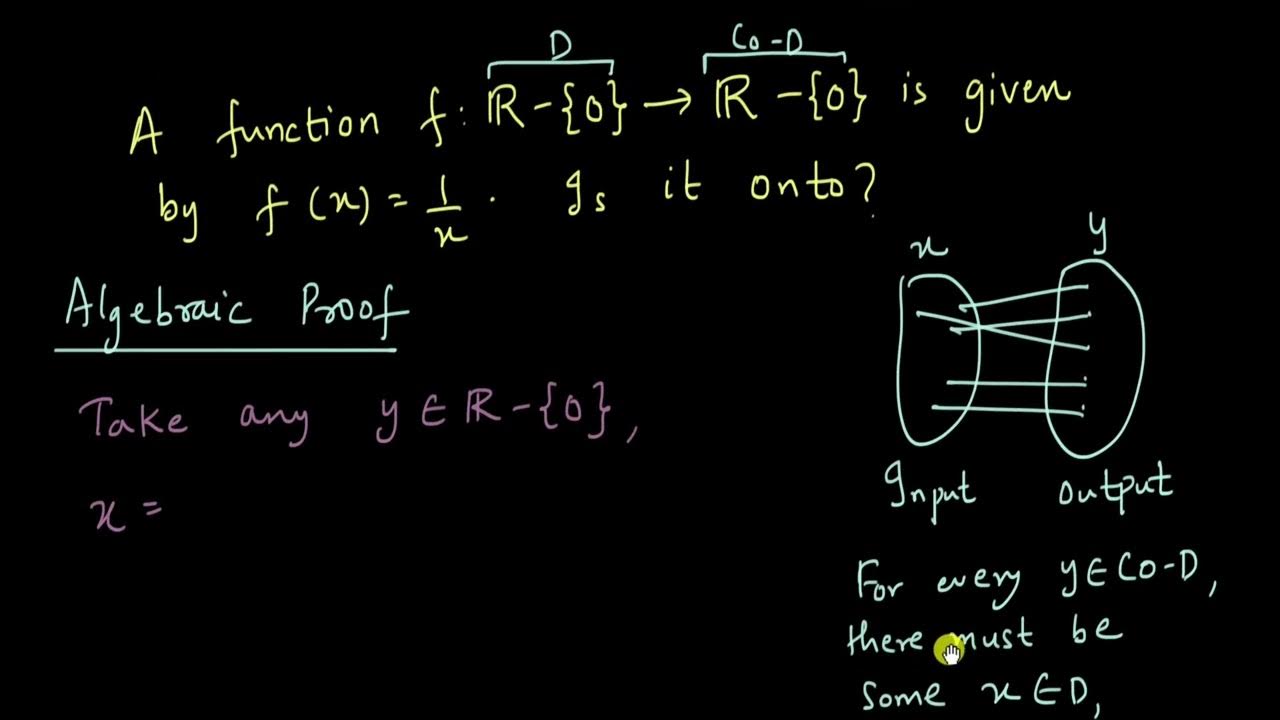 D Co-D
A function f: ℝ-{0} → ℝ-{0} is given
by f(x) = 1/x . Is it onto?
Algebraic Proof
Take any y ∈ ℝ-{0},
x =
x y
Input Output
For every y ∈ Co-D,
there must be
some x ∈ D,